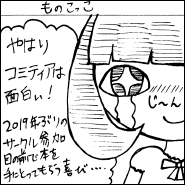 ものさっこ
やはり
コミティアは
面白い！
2019年ぶりの
サークル参加
目の前で本を
手にとってもらう喜び……
じ〜ん